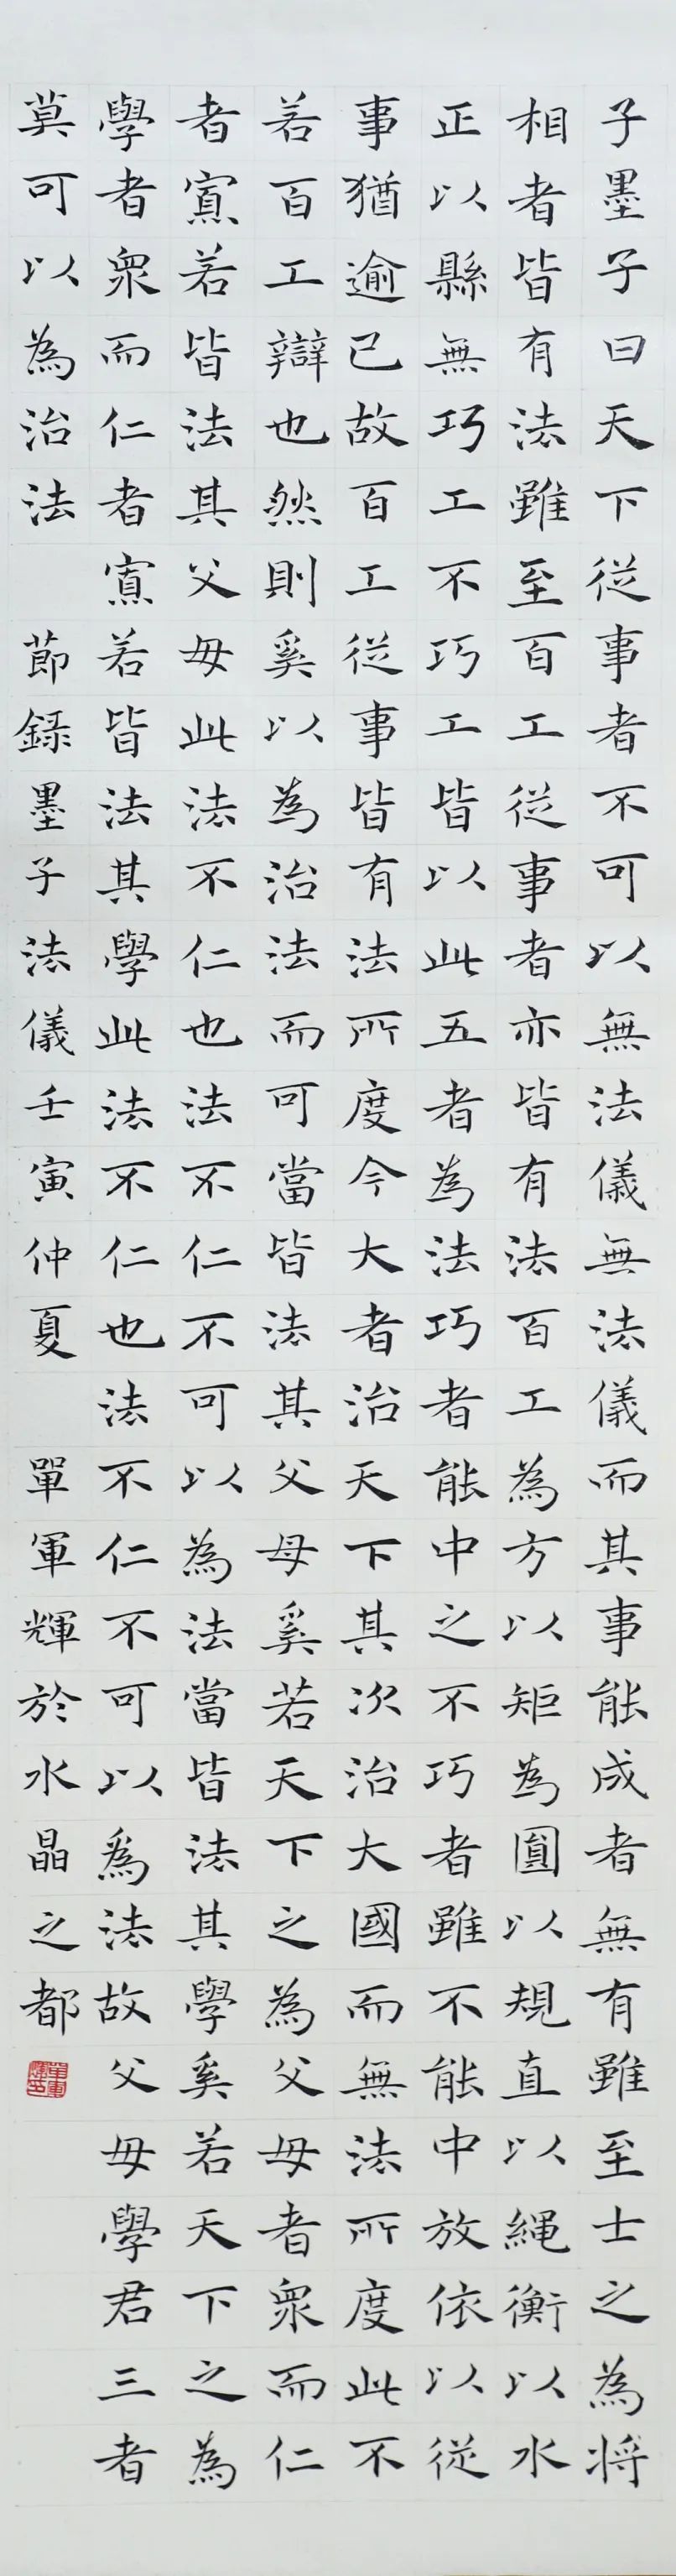 子墨子曰天下從事者不可以無法儀無法儀而其事能成者無有雖至士之為將
相者皆有法雖至百工從事者亦皆有法百工為方以矩為圓以規直以繩衡以水
正以縣無巧工不巧工皆以此五者為法巧者能中之不巧者雖不能中放依以從
事猶逾已故百工從事皆有法所度今大者治天下其次治大國而無法所度此不
若百工辯也然則奚以為治法而可當皆法其父母奚若天下之為父母者眾而仁
者寡若皆法其父母此法不仁也法不仁不可以為法當皆法其學奚若天下之為
學者眾而仁者寡若皆法其學此法不仁也法不仁不可以爲法故父母學君三者
莫可以為治法 節録墨子法儀壬寅仲夏 單軍輝於水晶之都
單軍輝印